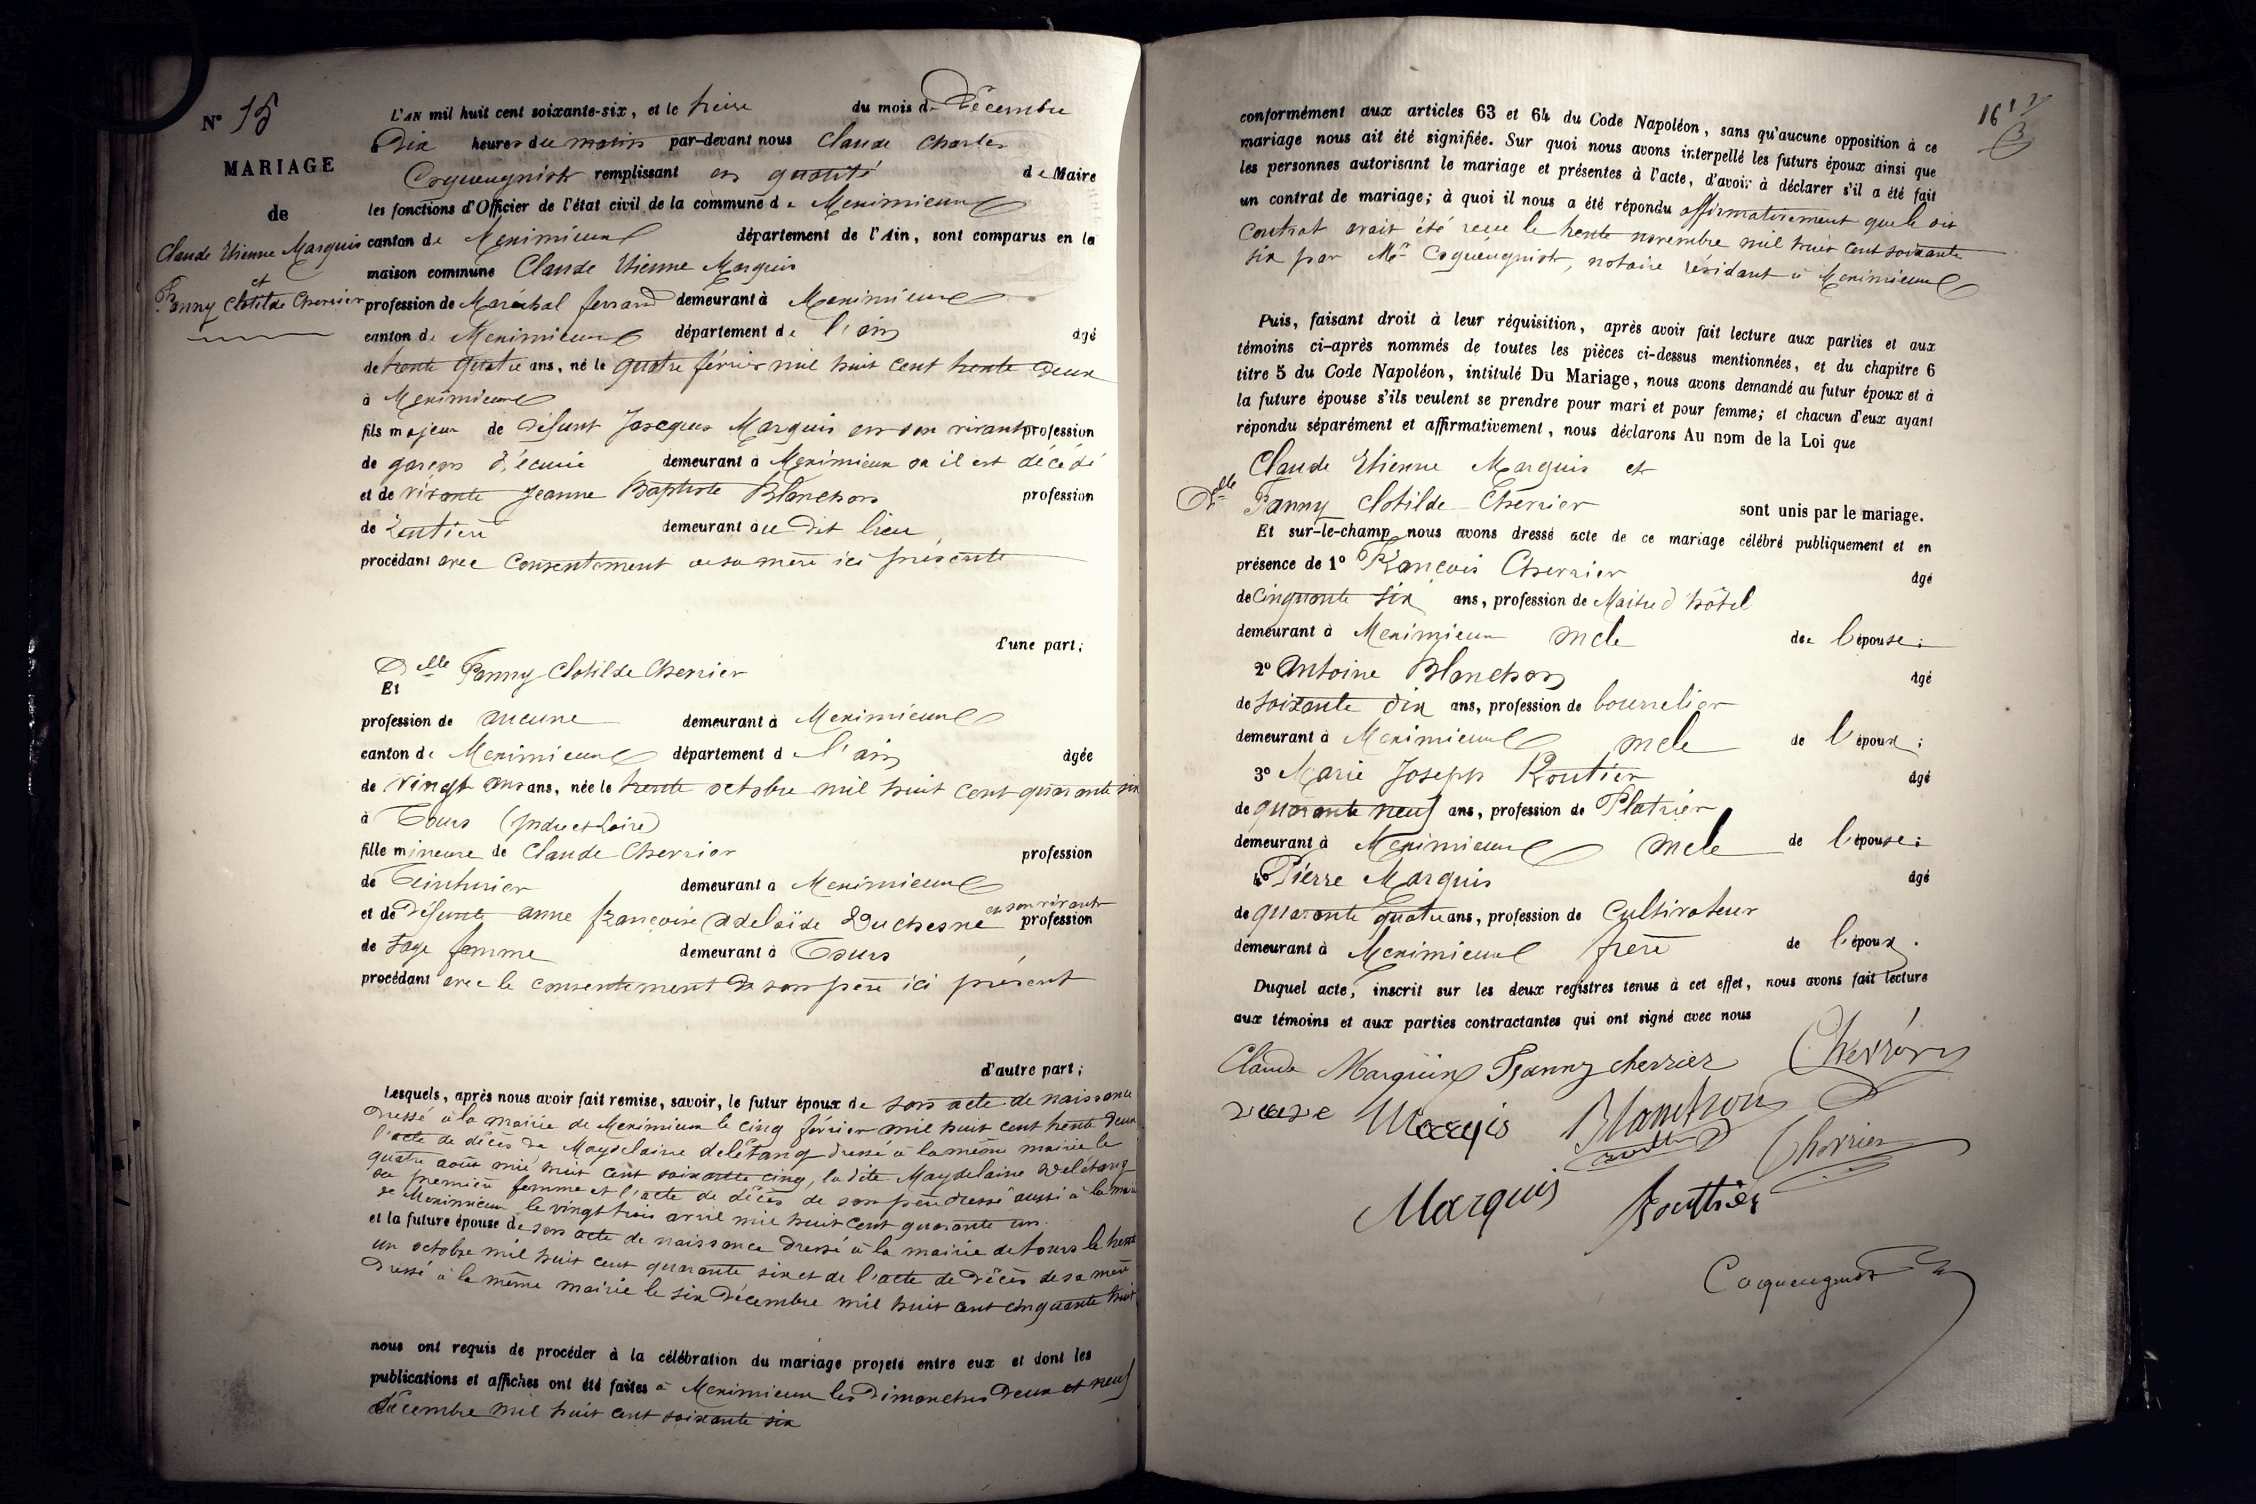 N° 15
MARIAGE
de
Claude Etienne Marquis
et
Fanny Clotilde Cherrier
L'AN mil huit cent soixante-six, et le treize du mois de Décembre
Dix heures du matin par-devant nous Claude Charles
Coqueugniot remplissant en qualité de Maire
les fonctions d'Officier de l'état civil de la commune de Meximieux
canton de Meximieux département de l'Ain, sont comparus en la
maison commune Claude Etienne Marquis
profession de Maréchal ferrand demeurant à Meximieux
canton de Meximieux département de l'ain âgé
de trente quatre ans, né le quatre février mil huit cent trente deux
à Meximieux
fils majeur de défunt Jacques Marquis en son vivant profession
de garçon d'écurie demeurant à Meximieux où il est décédé
et de vivante Jeanne Baptiste Blanchon profession
de Rentière demeurant au dit lieu
procédant avec consentement de sa mère ici présente
d'une part;
Et Delle Fanny Clotilde Cherrier
profession de aucune demeurant à Meximieux
canton de Meximieux département de l'ain âgée
de vingt ans ans, née le trente octobre mil huit cent quarante six
à Tours (Indre et Loire)
fille mineure de Claude Cherrier profession
de Teinturier demeurant à Meximieux
et de Défunte anne françoise adelaïde Duchesne en son vivant profession
de sage femme demeurant à Tours
procédant avec le consentement de son père ici présent
d'autre part;
Lesquels, après nous avoir fait remise, savoir, le futur époux de son acte de naissance
dressé à la mairie de Meximieux le cinq février mil huit cent trente deux
l'acte de décès de Magdelaine delétang dressé à la même mairie le
quatre août mil huit cent soixante cinq, la dite Magdelaine delétang
sa première femme et l'acte de décès de son père dressé aussi à la mairie
de Meximieux le vingt trois avril mil huit cent quarante un
et la future épouse de son acte de naissance dressé à la mairie de tours le trente
un octobre mil huit cent quarante six et de l'acte de décès de sa mère
dressé à la même mairie le six décembre mil huit cent cinquante huit
nous ont requis de procéder à la célébration du mariage projeté entre eux et dont les
publications et affiches ont été faites à Meximieux les dimanches deux et neuf
décembre mil huit cent soixante six
16
conformément aux articles 63 et 64 du Code Napoléon, sans qu'aucune opposition à ce
mariage nous ait été signifiée. Sur quoi nous avons interpellé les futurs époux ainsi que
les personnes autorisant le mariage et présentes à l'acte, d'avoir à déclarer s'il a été fait
un contrat de mariage; à quoi il nous a été répondu affirmativement que le dit
contrat avait été reçu le trente novembre mil huit cent soixante
six par Me Coqueugniot, notaire résidant à Meximieux
Puis, faisant droit à leur réquisition, après avoir fait lecture aux parties et aux
témoins ci-après nommés de toutes les pièces ci-dessus mentionnées, et du chapitre 6
titre 5 du Code Napoléon, intitulé Du Mariage, nous avons demandé au futur époux et à
la future épouse s'ils veulent se prendre pour mari et pour femme; et chacun d'eux ayant
répondu séparément et affirmativement, nous déclarons Au nom de la Loi que
Claude Etienne Marquis et
Delle Fanny Clotilde Cherrier sont unis par le mariage.
Et sur-le-champ nous avons dressé acte de ce mariage célébré publiquement et en
présence de 1° François Cherrier âgé
de cinquante six ans, profession de Maitre d'hôtel
demeurant à Meximieux oncle de l'épouse;
2° Antoine Blanchon âgé
de soixante dix ans, profession de bourrelier
demeurant à Meximieux oncle de l'époux;
3° Marie Joseph Routier âgé
de quarante neuf ans, profession de Platrier
demeurant à Meximieux oncle de l'épouse;
4° Pierre Marquis âgé
de quarante quatre ans, profession de Cultivateur
demeurant à Meximieux frère de l'époux.
Duquel acte, inscrit sur les deux registres tenus à cet effet, nous avons fait lecture
aux témoins et aux parties contractantes qui ont signé avec nous
Claude Marquis Fanny cherrier Cherrier
veuve Marqis Blanchon
Cherrier
Marquis Routhier
Coqueugniot